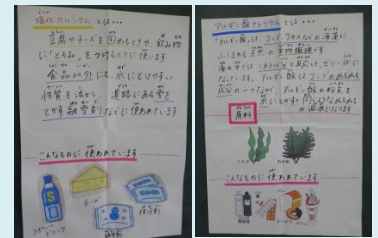 塩化カルシウムとは…
豆腐やチーズを固めるときや、飲み物
に"とろみ"をつけるときに使います
食品以外にも、水にとけやすい
性質を活かし、道路にある雪を
とかす融雪剤などに使われています
こんなものに使われています
S
チーズ
スポーツドリンク
融雪剤
保冷剤
アルギン酸ナトリウムとは…
「アルギン酸」は、コンブ、ワカメなどの海藻に
ふくまれる天然の食物繊維です
海の中では
なっています。アルギン酸は、コンブのぬるぬる
成分の一つなので、アルギン酸の粉末を
水にとかすと、同じようなぬるぬる
の液体になります
原料
こんぶ
わかめ
こんなものに使われています